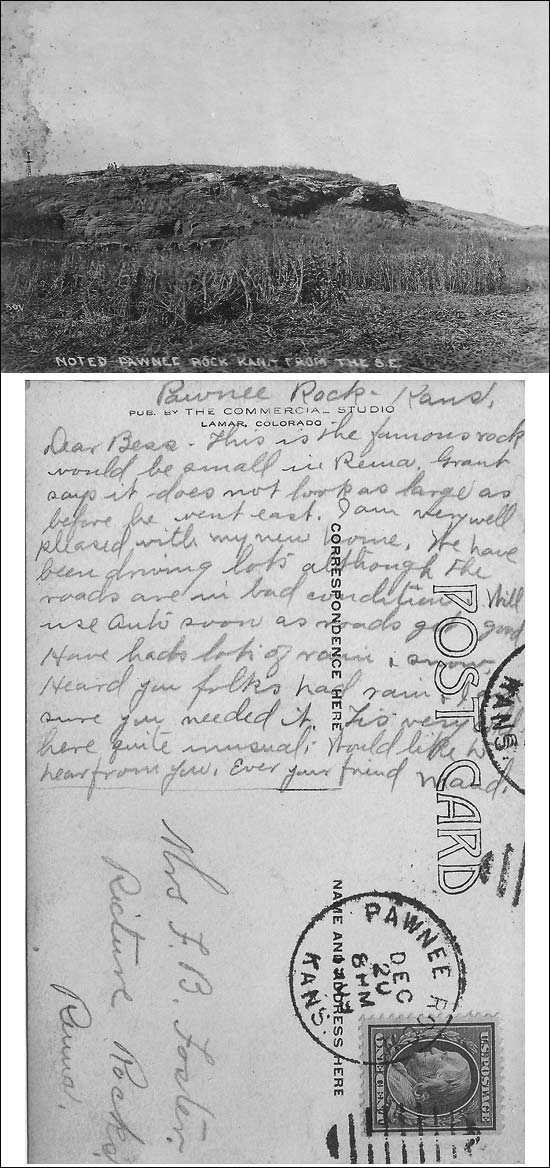 501
NOTED PAWNEE ROCK KAN. FROM THE S.E.
Pawnee Rock - Kans.
PUB. BY THE COMMERCIAL STUDIO
LAMAR, COLORADO
Dear Bess - This is the famous rock
would be small in Penna. Grant
says it does not look as large as
before he went east. I am very well
pleased with my new home. We have
been driving lots although the
roads are in bad condition. Will
use Auto soon as roads get good
Have had lots of rain & snow
Heard you folks had rain &
sure you needed it. Tis very
here quite unusual. Would like to
hear from you. Ever your friend Maud.
CORRESPONDENCE HERE
POST CARD
KANS.
Mrs F. B. Foster.
Picture Rocks
Penna.
NAME AND ADDRESS HERE
PAWNEE
DEC
20
8 AM
KANS.
U.S. POSTAGE
ONE CENT